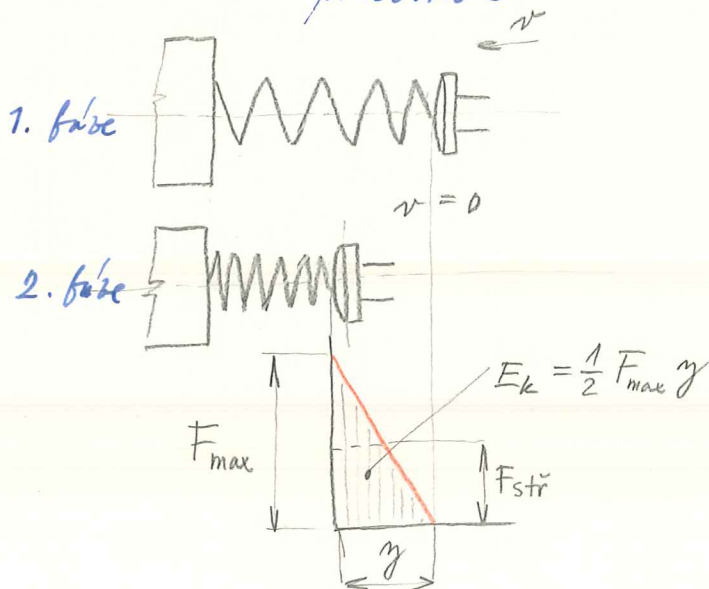 v
1. fáze
v = 0
2. fáze
E_k = 1/2 F_max y
F_max
F_stř
y